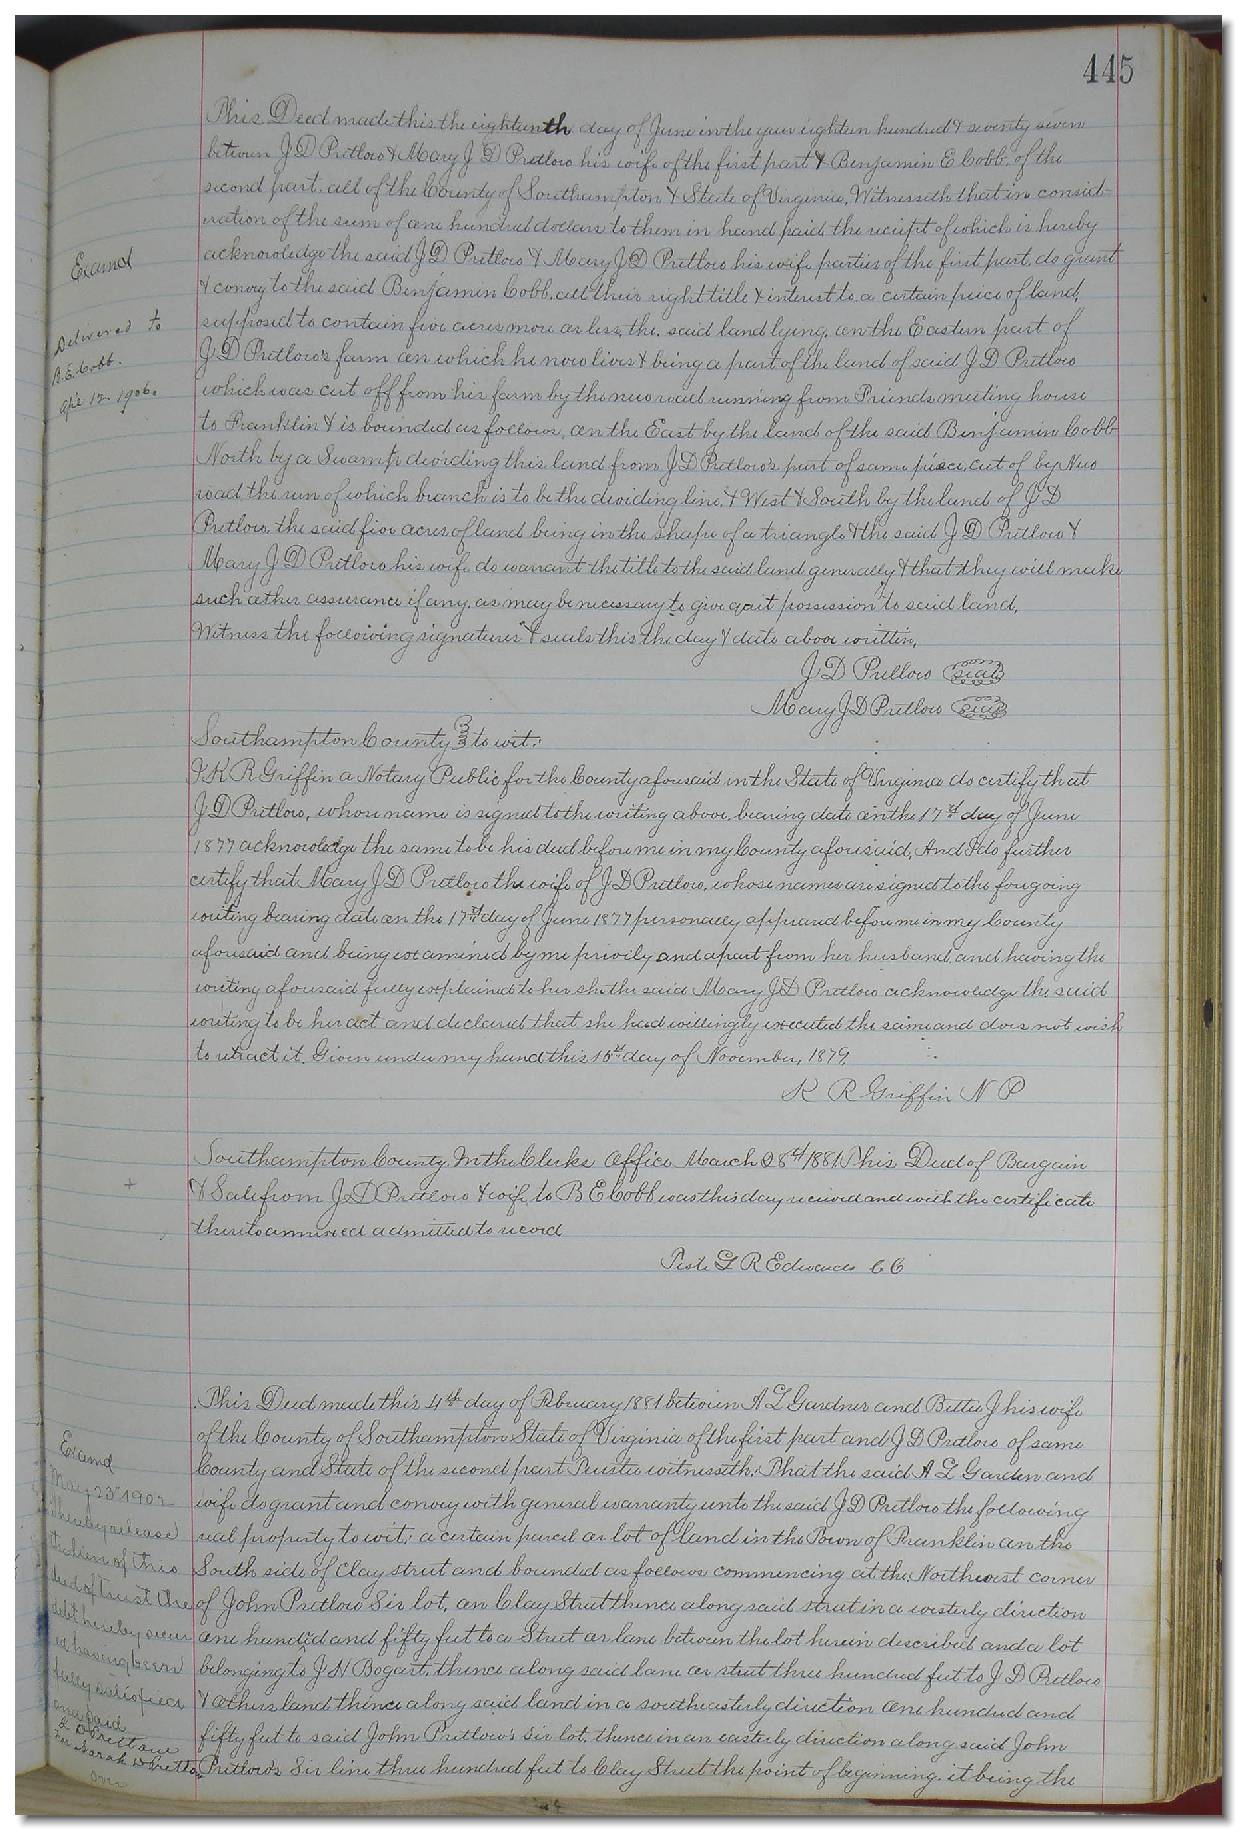 445
This Deed made this the eighteenth day of June in the year eighteen hundred & seventy seven
between J D Pretlow & Mary J D Pretlow his wife of the first part & Benjamin E Cobb, of the
second part, all of the County of Southampton & State of Virginia, Witnesseth that in consid-
eration of the sum of one hundred dollars to them in hand paid, the reciept of which is hereby
Examd
acknowledge the said J D Pretlow & Mary J D Pretlow his wife parties of the first part, do grant
& convey to the said Benjamin Cobb, all their right title & interest to a certain peice of land,
Delivered to
B. E. Cobb.
Apl 12 1906.
supposed to contain five acres more or less, the said land lying, on the Eastern part of
J D Pretlow's farm on which he now lives & being a part of the land of said J D Pretlow
which was cut off from his farm by the new road running from Friends meeting house
to Franklin & is bounded as follows, on the East by the land of the said Benjamin Cobb
North by a Swamp dividing this land from J D Pretlow's part of same piece, cut of by New
road the run of which branch is to be the dividing line, & West & South by the land of J D
Pretlow, the said five acres of land being in the shape of a triangle & the said J D Pretlow &
Mary J D Pretlow his wife do warrant the title to the said land generally & that they will make
such other assurance if any, as may be necessary to give quit possession to said land,
Witness the following signatures & seals this the day & date above written,
J D Pretlow seal
Mary J D Pretlow seal
Southampton County to wit:
I K R Griffin a Notary Public for the County aforesaid in the State of Virginia do certify that
J D Pretlow, whose name is signed to the writing above, bearing date on the 17th day of June
1877 acknowledge the same to be his deed before me in my County aforesaid, And I do further
certify that Mary J D Pretlow the wife of J D Pretlow, whose names are signed to the forgoing
writing bearing date on the 17th day of June 1877 personally appeared before me in my County
aforesaid and being examined by me privily and apart from her husband, and having the
writing aforesaid fully explained to her she the said Mary J D Pretlow acknowledge the said
writing to be her act and declared that she had willingly executed the same and does not wish
to retract it. Given under my hand this 15th day of November, 1879,
K R Griffin N P
Southampton County In the Clerks Office March 8th 1881 This Deed of Bargain
& Sale from J D Pretlow & wife to B E Cobb was this day received and with the certificate
thereto annexed admitted to record
Teste G R Edwards C C
This Deed made this 4th day of February 1881 between A L Gardner and Bettie J his wife
of the County of Southampton State of Virginia of the first part and J D Pretlow of same
County and State of the second part Trustee witnesseth: That the said A L Garden and
wife do grant and convey with general warranty unto the said J D Pretlow the following
real property to wit; a certain parcel or lot of land in the Town of Franklin on the
South side of Clay street and bounded as follows commencing at the Northwest corner
of John Pretlow Sir lot, on Clay Street thence along said street in a westerly direction
one hundred and fifty feet to a Street or lane between the lot herein described and a lot
belonging to J N Bogart, thence along said lane or street three hundred feet to J D Pretlow
& others land thence along said land in a southeasterly direction one hundred and
fifty feet to said John Pretlow's Sir lot, thence in an easterly direction along said John
Pretlow's Sir line three hundred feet to Clay Street the point of beginning, it being the
Examd
May 23rd 1902
I hereby release
the lien of this
deed of trust the
debt hereby secur
ed having been
fully satisfied
and paid
J D Pretlow
for Sarah Pretlow
over